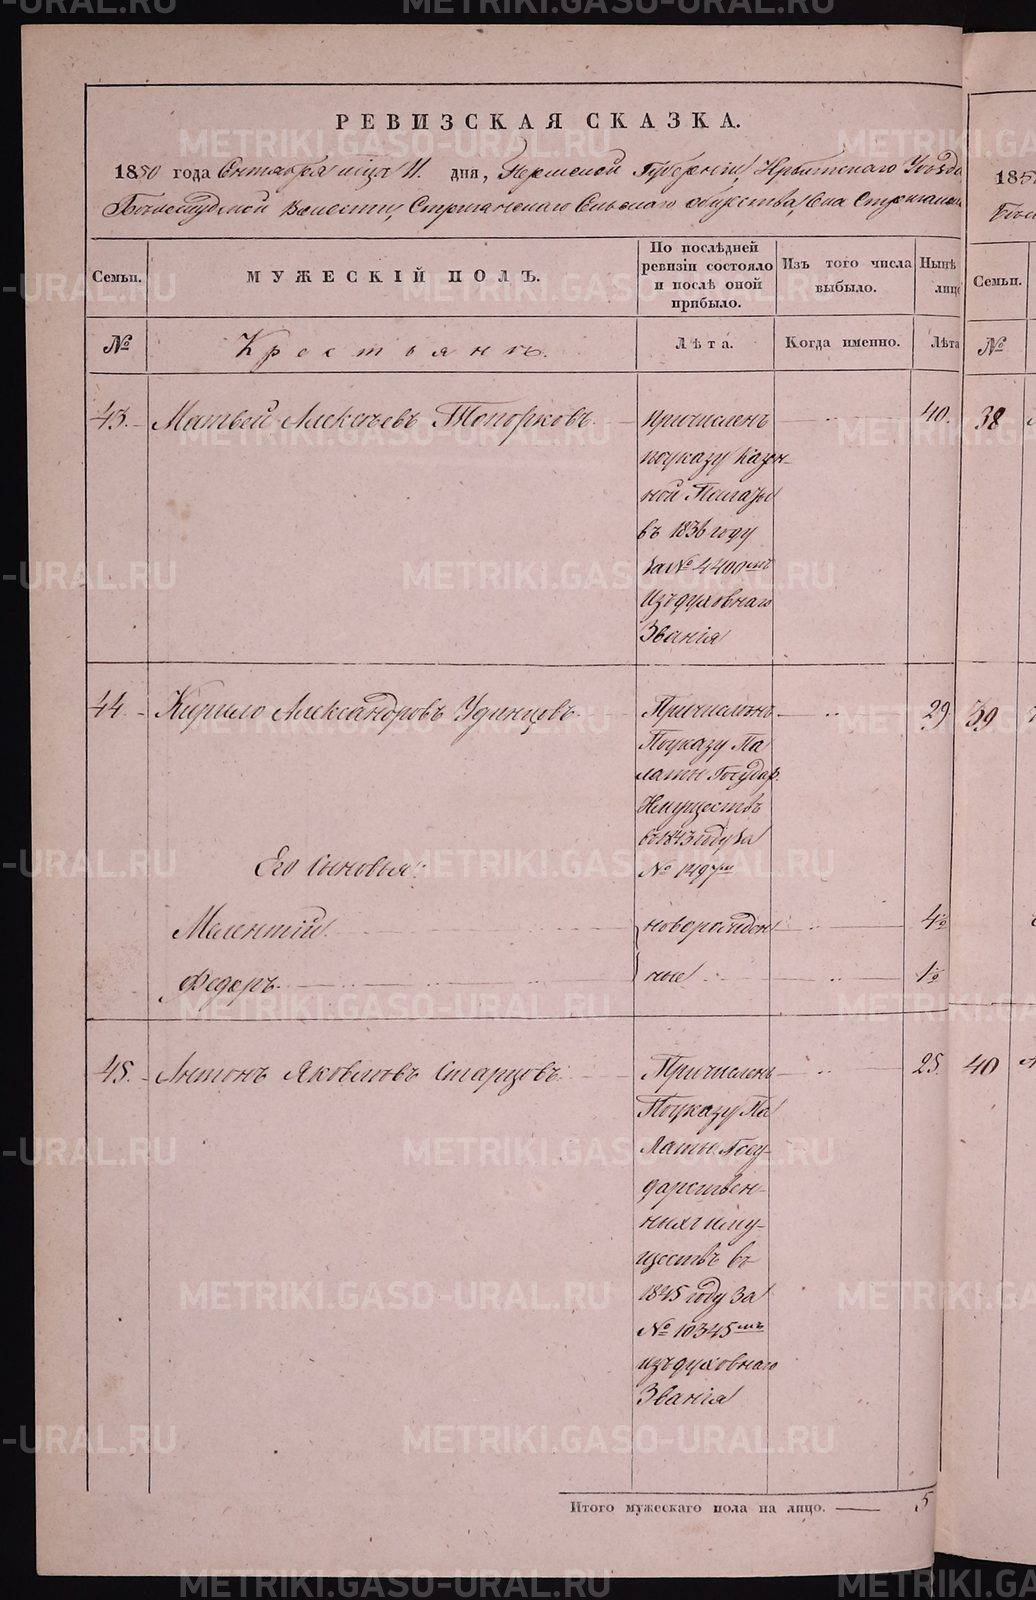 METRIKI.GASO-URAL.RU
РЕВИЗСКАЯ СКАЗКА.
1850 года Сентября мца 11. дня, Пермской Губерніи, Ирбитскаго Уѣзда
Волости, Сельскаго общества, Села
Семьи. МУЖЕСКІЙ ПОЛЪ. По послѣдней ревизіи состояло и послѣ оной прибыло. Изъ того числа выбыло. Нынѣ лицо
№ Крестьянъ. Лѣта. Когда именно. Лѣта
43. Матвей Алексѣевъ Топорковъ. Причисленъ 40.
по указу Казен-
ной Палаты
въ 1836 году
за № 4400мъ
изъ духовнаго
Званія
44. Кирило Александровъ Удинцовъ Причисленъ 29
По указу Па
латы Государ.
Имуществъ
въ 1843 году за
Его Сыновья: №
Мелентій новорожден 4½
Федоръ. ные 1½
45. Антонъ Яковлевъ Старцовъ. Причисленъ 25.
По указу Па
латы Госу-
дарствен-
ныхъ иму-
ществъ въ
1845 году За
№ 10345мъ
изъ духовнаго
Званія
Итого мужескаго пола на лицо. 5
185
Семьи.
№
38
39
40